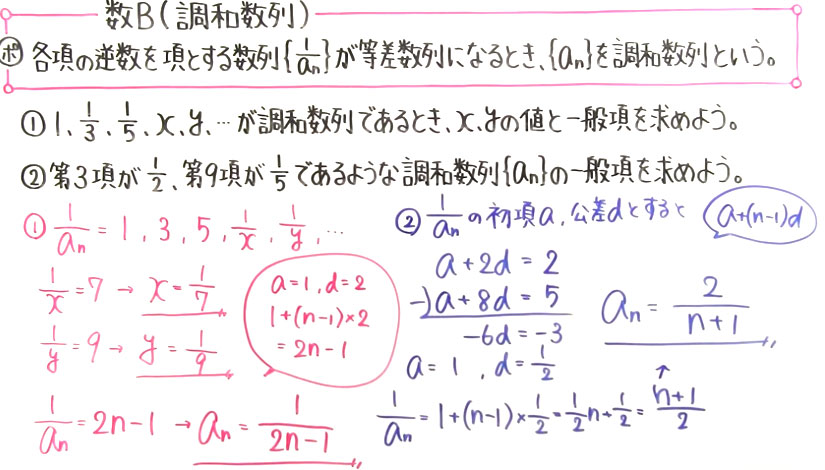 数B(調和数列)
ポ 各項の逆数を項とする数列{1/an}が等差数列になるとき、{an}を調和数列という。
① 1、1/3、1/5、x、y、… が調和数列であるとき、x、yの値と一般項を求めよう。
② 第3項が1/2、第9項が1/5であるような調和数列{an}の一般項を求めよう。
① 1/an = 1, 3, 5, 1/x, 1/y, …
1/x = 7 → x = 1/7
1/y = 9 → y = 1/9
a=1, d=2
1+(n-1)×2
= 2n-1
1/an = 2n-1 → an = 1/(2n-1)
② 1/an の初項a, 公差dとすると a+(n-1)d
a+2d = 2
-)a+8d = 5
-6d = -3
a = 1, d = 1/2
1/an = 1+(n-1)×1/2 = 1/2n+1/2 = (n+1)/2
↑
an = 2/(n+1)